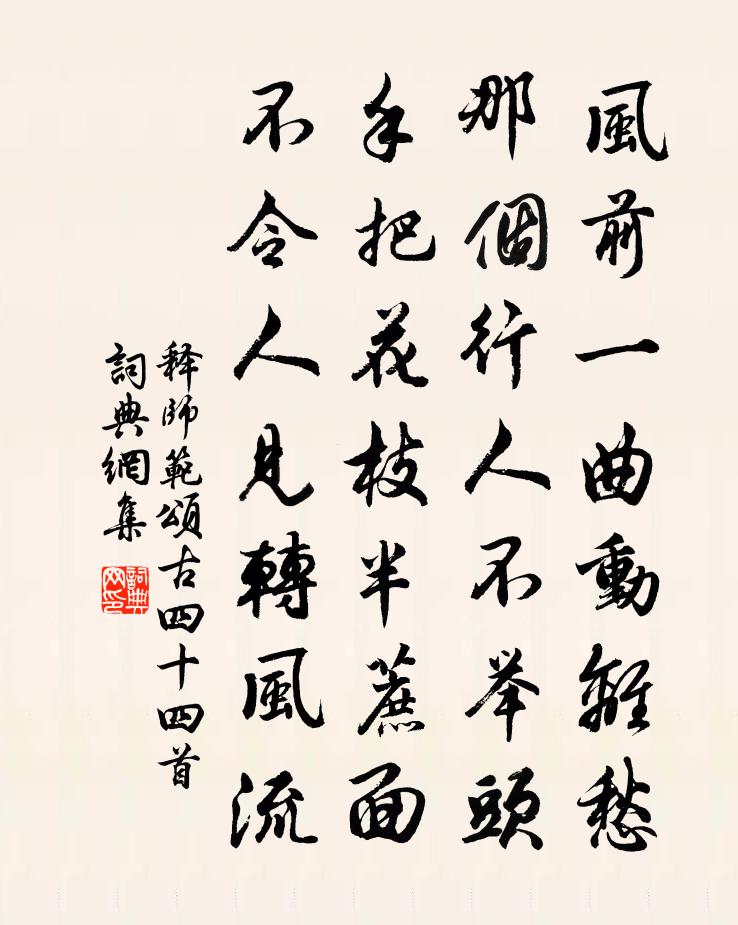 風前一曲動離愁
那個行人不举頭
手把花枝半蔗面
不令人見轉風流
释師範頌古四十四首
詞典網集
詞典網印